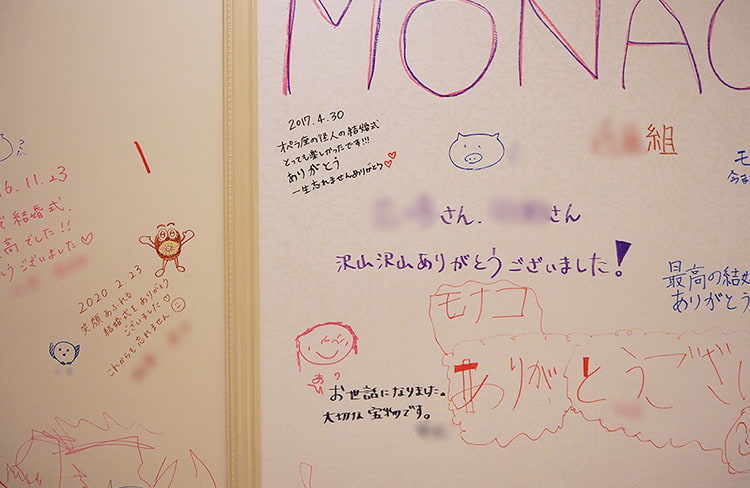 MONAC
2017.4.30
オペラ座の怪人の結婚式
とっても楽しかったです!!!
ありがとう
一生忘れませんありがとう♡♡
組
さん、 さん
沢山沢山ありがとうございました!
最高の結婚
ありがとう
モナコ
ありがとうござい
お世話になりました。
大切な宝物です。
6.11.23
結婚式、
高でした!!
うございました♡
2020.2.23
笑顔あふれる
結婚式をありがとう
ございました♡
これからも忘れません